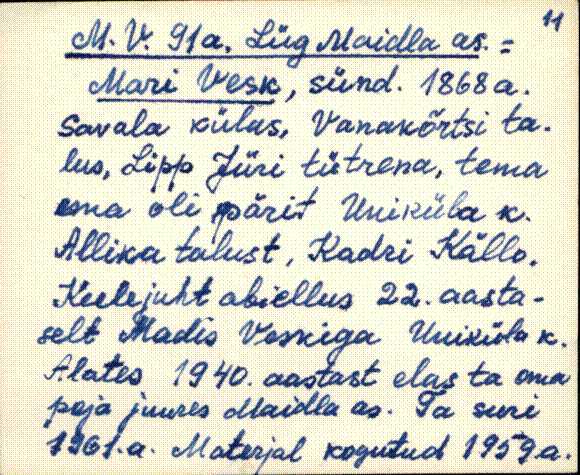 11
M. V. 91a. Lüg Maidla as. =
Mari Vesk, sünd. 1868 a.
Savala külas, Vanakõrtsi ta-
lus, Lipp Jüri tütrena, tema
ema oli pärit Uniküla k.
Allika talust, Kadri Källo.
Keelejuht abiellus 22. aasta-
selt Madis Veskiga Uniküla k.
Alates 1940. aastast elas ta oma
poja juures Maidla as. Ta suri
1961. a. Materjal kogutud 1959 a.